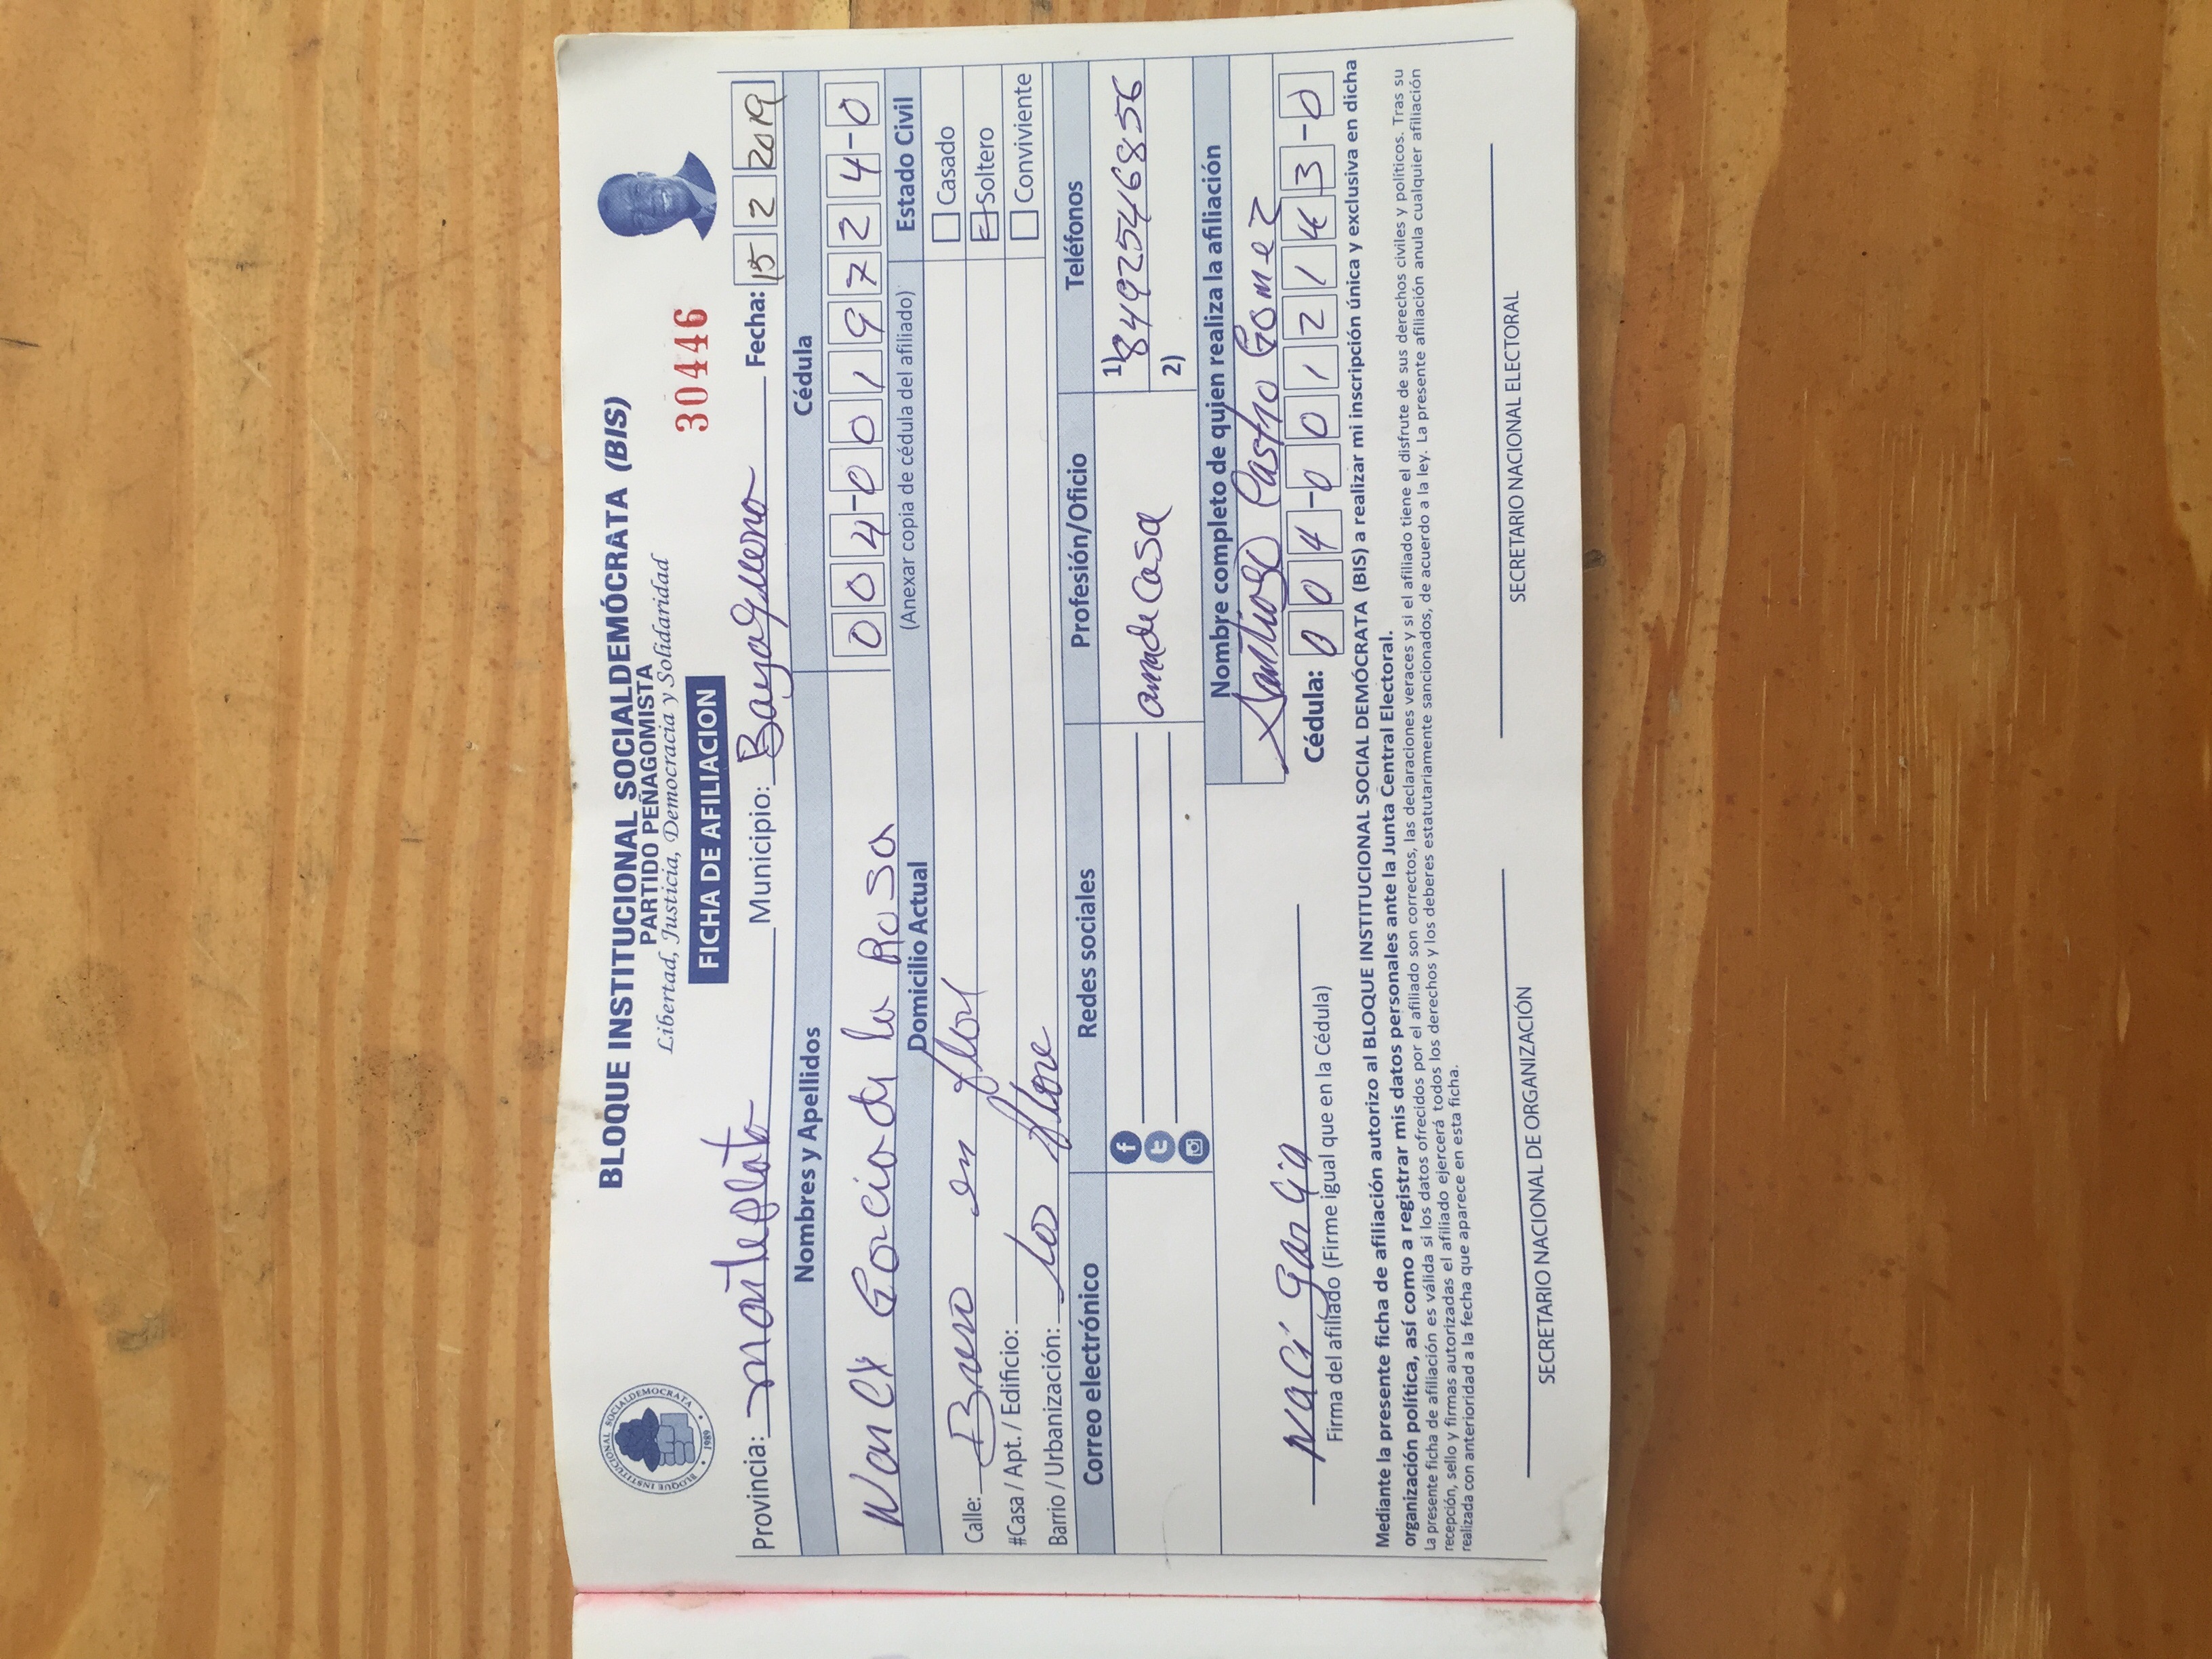 BLOQUE INSTITUCIONAL SOCIALDEMÓCRATA (BIS)
PARTIDO PEÑAGOMISTA
Libertad, Justicia, Democracia y Solidaridad
BLOQUE INSTITUCIONAL SOCIALDEMOCRATA • 1989 •
30446
FICHA DE AFILIACION
Provincia: monteplata Municipio: Bayaguena Fecha: 15 2 2019
Nombres y Apellidos Cédula
Garcia de la Rosa 004-0019724-0
Domicilio Actual (Anexar copia de cédula del afiliado) Estado Civil
Calle: en flor
#Casa / Apt. / Edificio:
Barrio / Urbanización: los flore
Casado
Soltero
Conviviente
Correo electrónico Redes sociales Profesión/Oficio Teléfonos
ama de Casa
1) 8492546856
2)
Nombre completo de quien realiza la afiliación
Santiago Castro Gomez
Cédula: 004-0012143-0
Firma del afiliado (Firme igual que en la Cédula)
Mediante la presente ficha de afiliación autorizo al BLOQUE INSTITUCIONAL SOCIAL DEMÓCRATA (BIS) a realizar mi inscripción única y exclusiva en dicha
organización política, así como a registrar mis datos personales ante la Junta Central Electoral.
La presente ficha de afiliación es válida si los datos ofrecidos por el afiliado son correctos, las declaraciones veraces y si el afiliado tiene el disfrute de sus derechos civiles y políticos. Tras su
recepción, sello y firmas autorizadas el afiliado ejercerá todos los derechos y los deberes estatutariamente sancionados, de acuerdo a la ley. La presente afiliación anula cualquier afiliación
realizada con anterioridad a la fecha que aparece en esta ficha.
SECRETARIO NACIONAL DE ORGANIZACIÓN SECRETARIO NACIONAL ELECTORAL